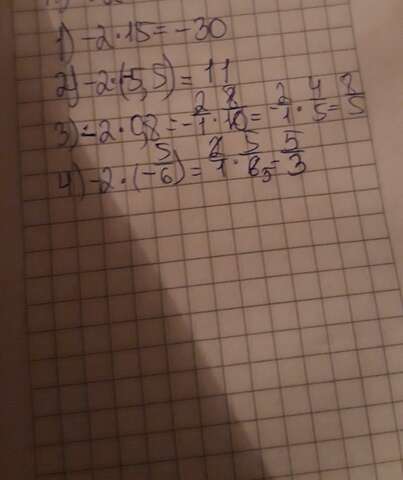 1) -2·15 = -30
2) -2·(-5,5) = 11
3) -2·0,8 = -2/1·8/10 = -2/1·4/5 = 8/5
4) -2·(-5/6) = 2/1·5/6 = 5/3